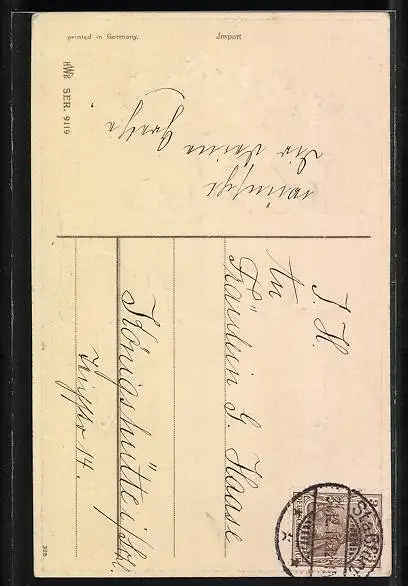 printed in Germany.
Import
HWB SER. 9119
wünscht
Dir Deine Grethe
J. H.
An
Fräulein G. Haase
Königshütte o/Schl.
14.